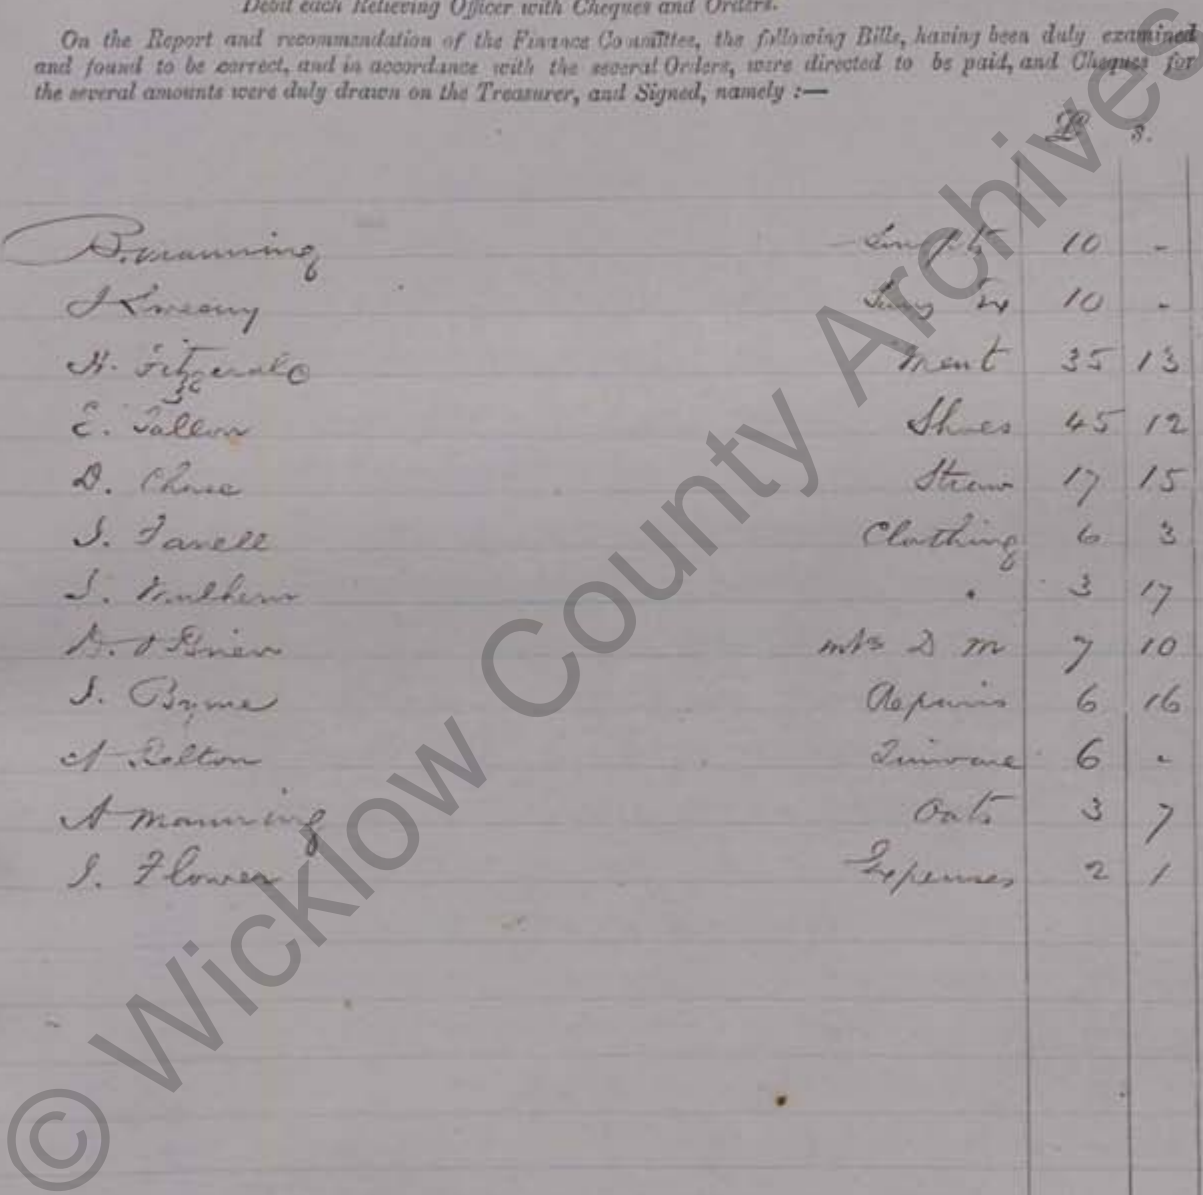 Debit each Relieving Officer with Cheques and Orders.
On the Report and recommendation of the Finance Committee, the following Bills, having been duly examined
and found to be correct, and in accordance with the several Orders, were directed to be paid, and Cheques for
the several amounts were duly drawn on the Treasurer, and Signed, namely :—
£ s.
B. Manning 10 -
10 -
H. Fitzgerald Meat 35 13
E. Tallon Shoes 45 12
D. Straw 17 15
J. Farrell Clothing 6 3
J. " 3 17
D. O'Brien D M 7 10
J. Byrne Repairs 6 16
A 6 -
A Manning Oats 3 7
J. Flower Expenses 2 1
© Wicklow County Archives